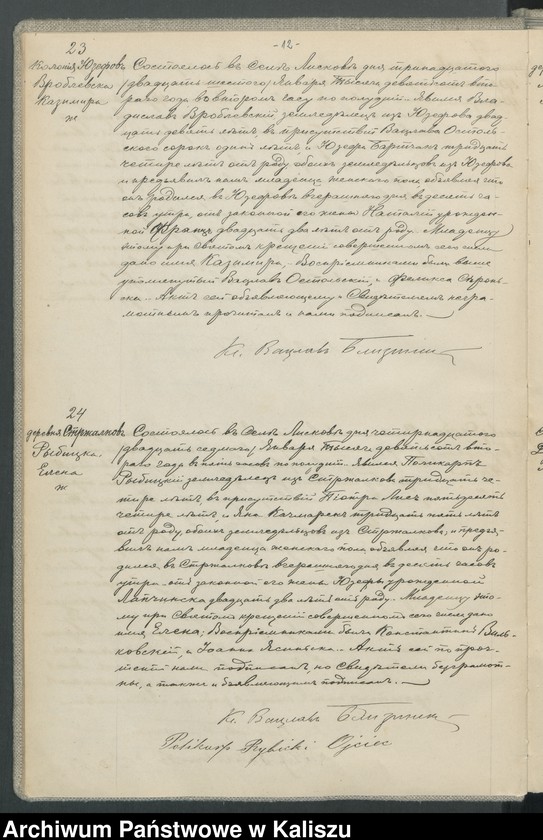 -12-
23
Колонія Юзефовъ
Вроблевска
Казимира
ж
Состоялось въ Селѣ Лисковѣ дня тринадцатаго
/двадцать шестого/ Января тысяча девятьсотъ вто-
рого года въ второмъ часу по полудни. Явился Вла-
диславъ Вроблевскій земледѣлецъ изъ Юзефова двад-
цать девять лѣтъ, въ присутствіи Вацлава Остоль-
скаго сорокъ одинъ лѣтъ и Юзефа Бартчакъ тридцать
четыре лѣтъ отъ роду обоихъ земледѣльцовъ изъ Юзефова
и предъявилъ намъ младенца женскаго пола объявляя что
онъ родился въ Юзефовѣ вчерашняго дня въ десять ча-
совъ утра, отъ законной его жены Наталіи урожден-
ной Франца двадцать два лѣтъ отъ роду. Младенцу
этому при святомъ крещеніи совершенномъ сего числа
дано имя Казимира, Воспріемниками были выше
упомянутый Вацлавъ Остольскій, и Феликса
Актъ сей объявляющему и Свидѣтелямъ негра-
мотнымъ прочитанъ и нами подписанъ.
Кс. Вацлавъ Близинскій
24
деревня Стржалковъ
Рыбицка
Елена
ж
Состоялось въ Селѣ Лисковѣ дня четырнадцатаго
/двадцать седьмого/ Января тысяча девятьсотъ вто-
рого года въ пять часовъ по полудни. Явился Поликарпъ
Рыбицкій земледѣлецъ изъ Стржалкова тридцать че-
тыре лѣтъ въ присутствіи Піотра Лисъ пятьдесятъ
четыре лѣтъ и Яна Качмарекъ тридцать пять лѣтъ
отъ роду, обоихъ земледѣльцовъ изъ Стржалкова, и предъя-
вилъ намъ младенца женскаго пола объявляя что онъ ро-
дился въ Стржалковѣ вчерашняго дня въ десять часовъ
утра отъ законной его жены Юзефы урожденной
Лапчинска двадцать два лѣтъ отъ роду. Младенцу это-
му при Святомъ крещеніи совершенномъ сего числа дано
имя Елена; Воспріемниками были Константинъ Виль-
ковскій, и Іоанна Ясиньска. Актъ сей по проч-
теніи нами подписанъ, но Свидѣтели безграмот-
ны, а также и объявляющимъ подписанъ.
Кс. Вацлавъ Близинскій
Polikarp Rybicki Ojciec
Archiwum Państwowe w Kaliszu